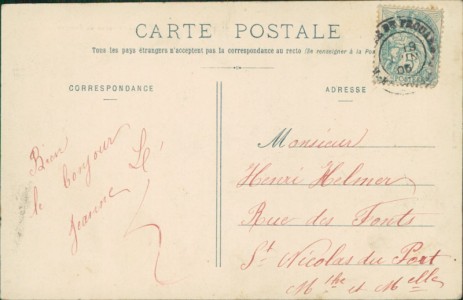 CARTE POSTALE
Tous les pays étrangers n'acceptent pas la correspondance au recto (Se renseigner à la Poste)
CORRESPONDANCE
ADRESSE
Bien
le bonjour
Jeanne
Monsieur
Henri Helmer
Rue des Fonts
St Nicolas du Port
Mthe et Melle